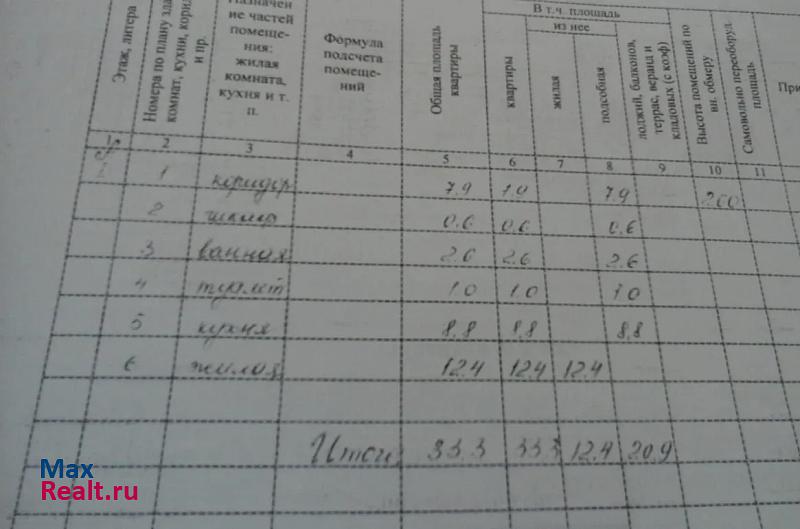 Этаж, литера
Номера по плану зда
комнат, кухни, кори
и пр.
Назначен
ие частей
помеще-
ния:
жилая
комната,
кухня и т.
п.
Формула
подсчета
помеще-
ний
Общая площадь
квартиры
В т.ч. площадь
из нее
квартиры
жилая
подсобная
лоджий, балконов,
террас, веранд и
кладовых (с коэф)
Высота помещений по
вн. обмеру
Самовольно переоборуд.
площадь
При
1 2 3 4 5 6 7 8 9 10 11
1 коридор 7.9 7.9 260
2 шкаф 0.6 0.6 0.6
3 ванная 2.6 2.6 2.6
4 туалет 1.0 1.0 1.0
5 кухня 8.8 8.8 8.8
6 жилая 12.4 12.4 12.4
Итого 33.3 33.3 12.4 20.9
Max
Realt.ru